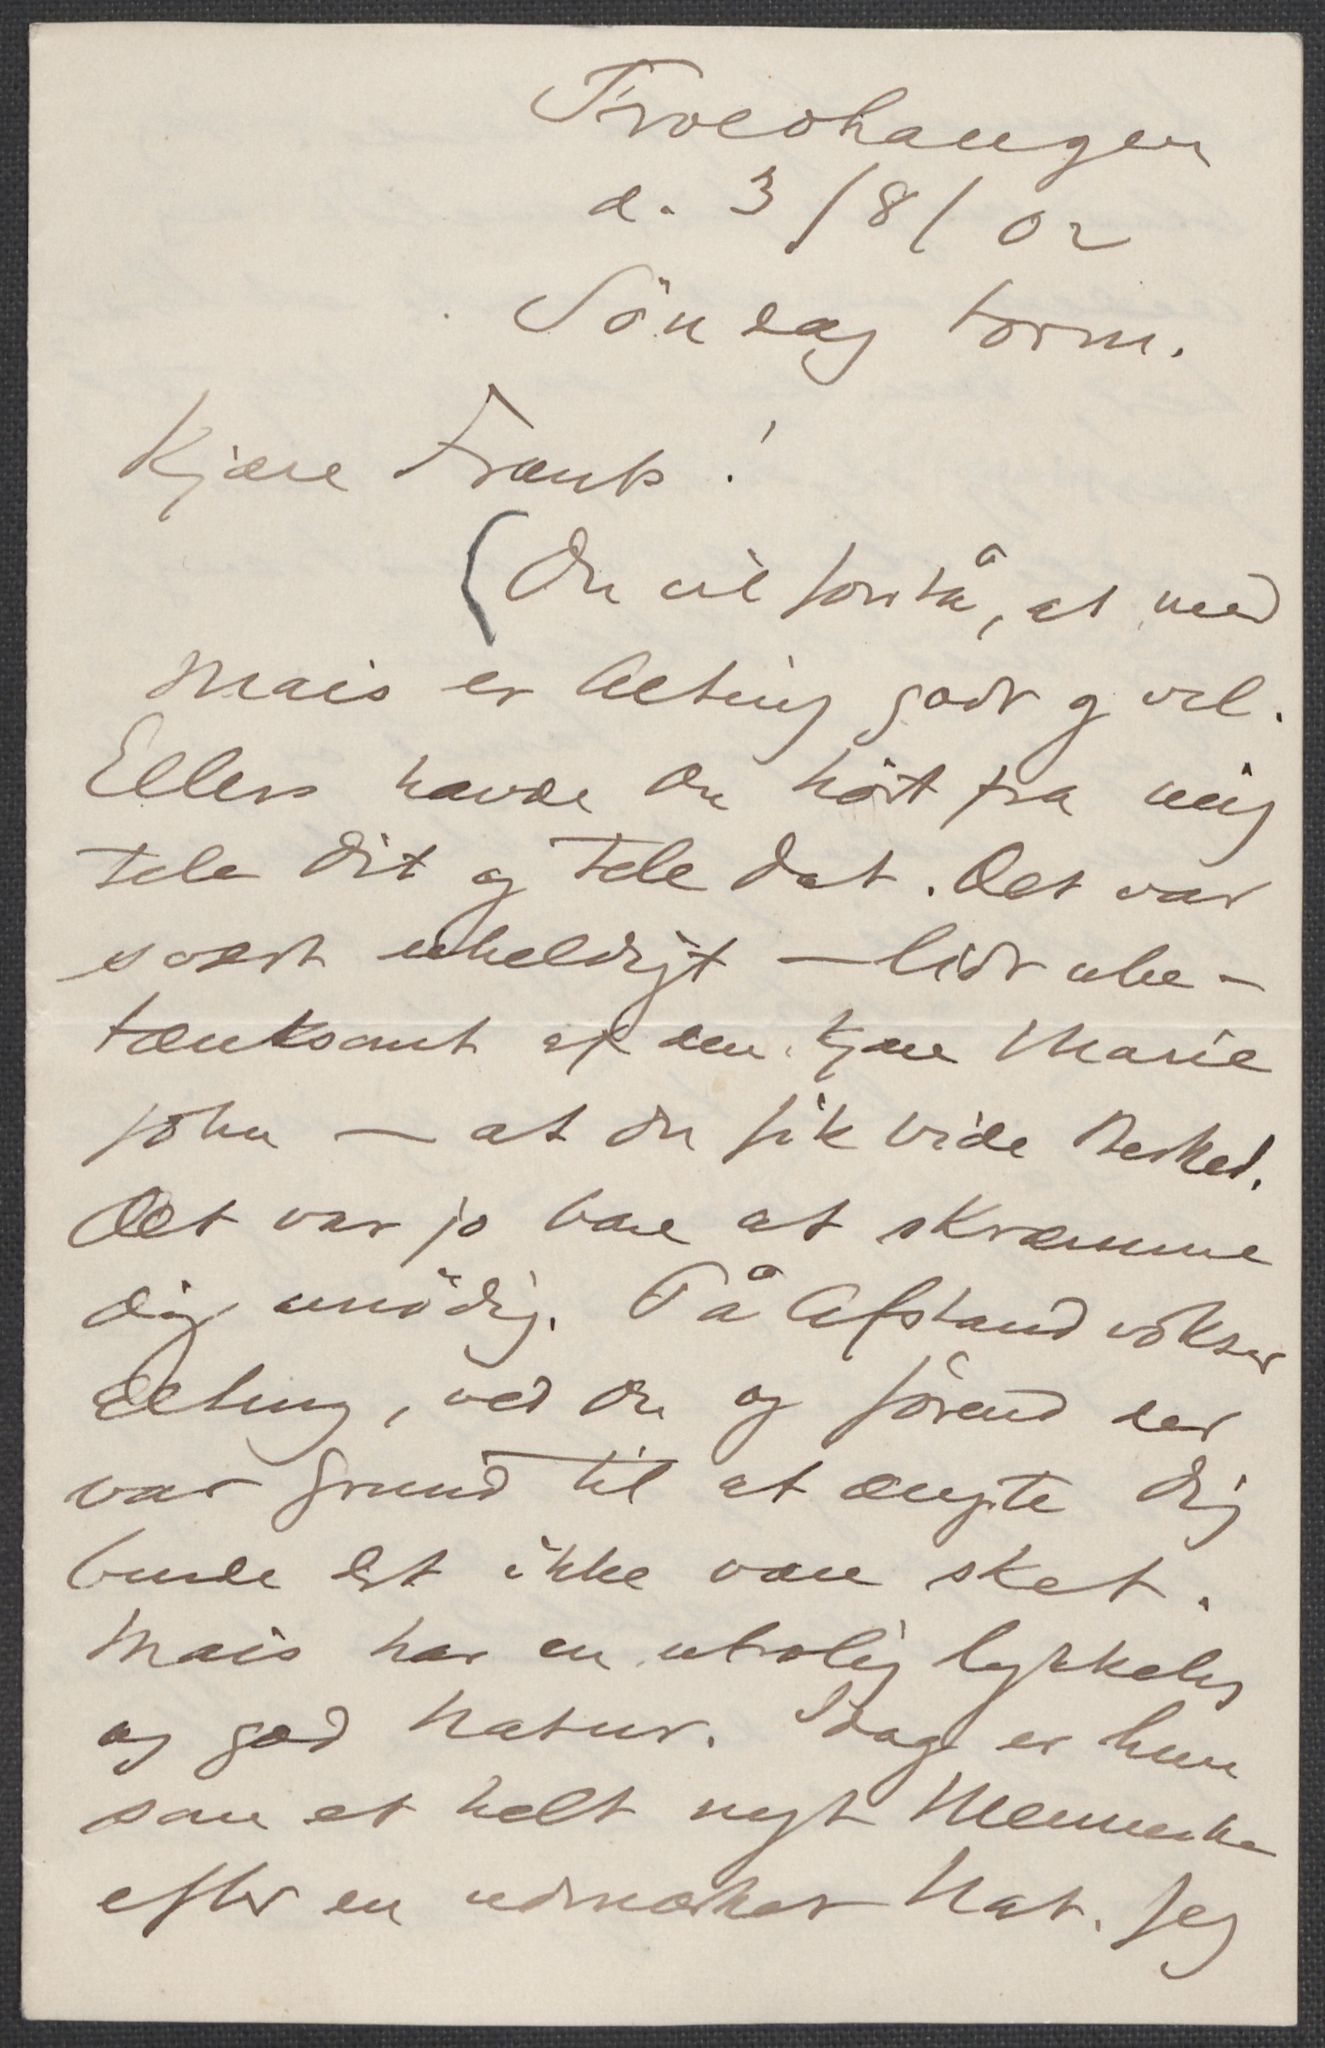 Troldhaugen
d. 3/8/02
Söndag form.
Kjære Frants!
(Du vil forstå, at med
Mais er Alting godt og vel.
Ellers havde du hört fra mig
tele dit og tele dat. Det var
svært uheldigt – lidt ube-
tænksomt af den kjære Marie
– at du fik vide Besked.
Det var jo bare at skræmme
dig unödig. På Afstand vokser
Alting, ved du og förend der
var Grund til at ængste dig
burde det ikke være sket.
Mais har en utrolig lykkelig
og god Natur. Idag er hun
som et helt nyt Menneske
efter en udmærket Nat. Jeg